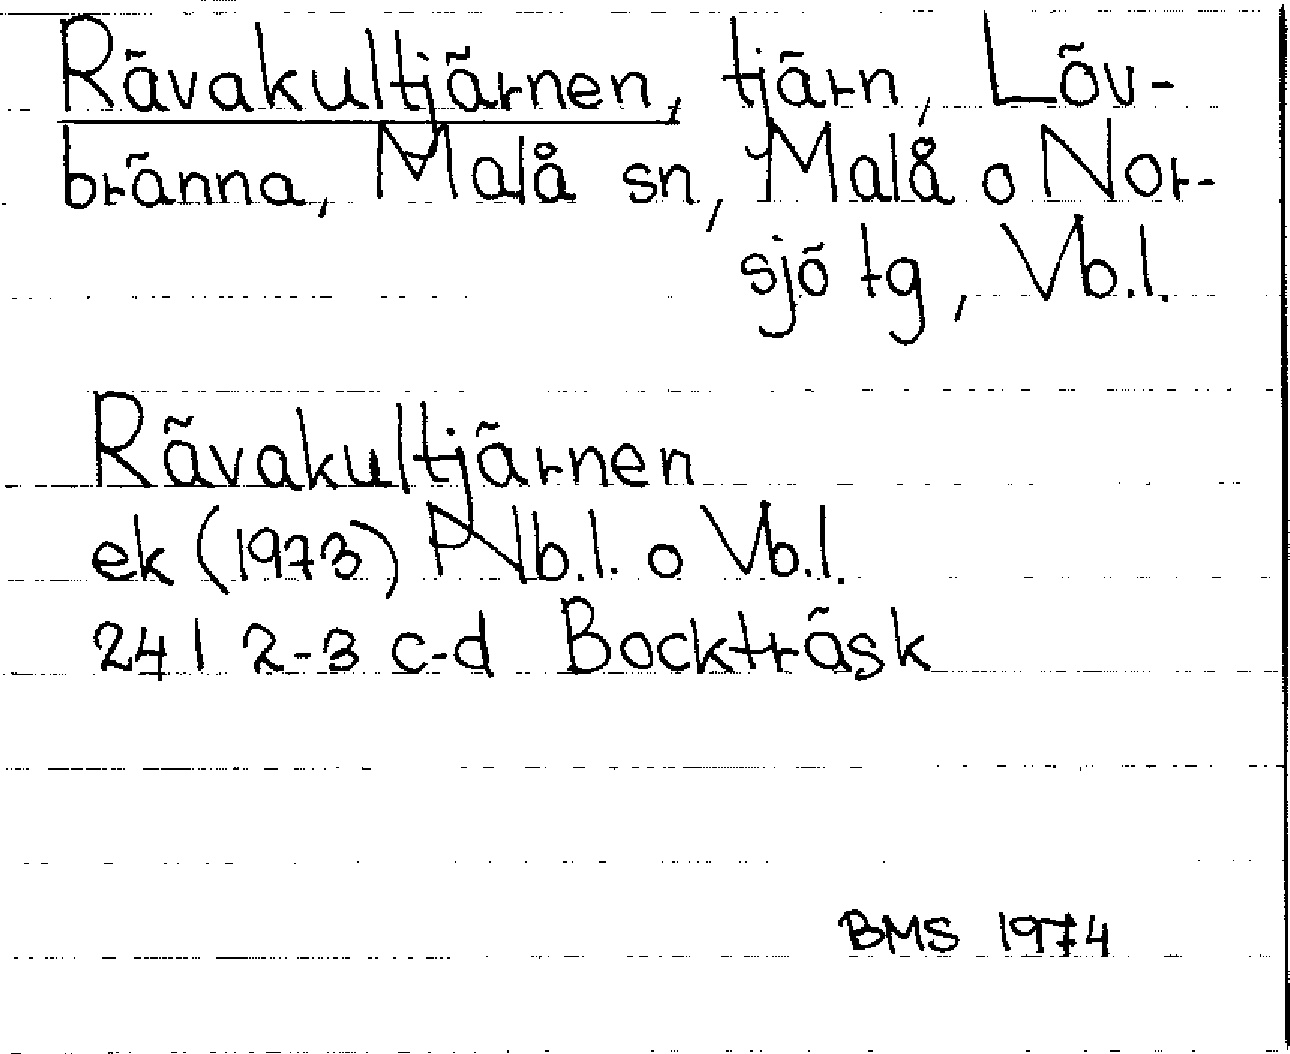 Rävakultjärnen, tjärn, Löv-
bränna, Malå sn, Malå o Nor-
sjö tg, Vb.l.
Rävakultjärnen
ek (1973) Nb.l. o Vb.l.
24 I 2-3 c-d Bockträsk
BMS 1974